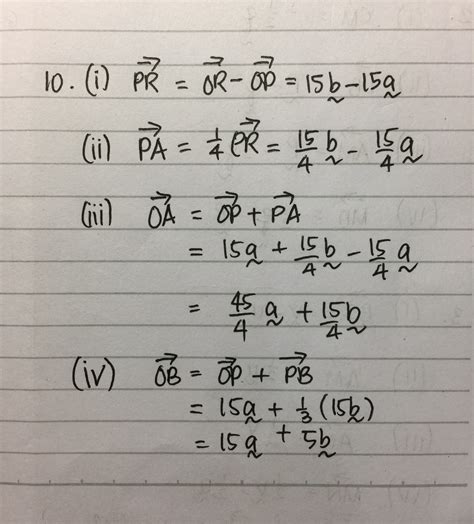 10. (i) $\overrightarrow{PR} = \overrightarrow{OR} - \overrightarrow{OP} = 15\underset{\sim}{b} - 15\underset{\sim}{a}$
(ii) $\overrightarrow{PA} = \frac{1}{4}\overrightarrow{PR} = \frac{15}{4}\underset{\sim}{b} - \frac{15}{4}\underset{\sim}{a}$
(iii) $\overrightarrow{OA} = \overrightarrow{OP} + \overrightarrow{PA}$
$= 15\underset{\sim}{a} + \frac{15}{4}\underset{\sim}{b} - \frac{15}{4}\underset{\sim}{a}$
$= \frac{45}{4}\underset{\sim}{a} + \frac{15}{4}\underset{\sim}{b}$
(iv) $\overrightarrow{OB} = \overrightarrow{OP} + \overrightarrow{PB}$
$= 15\underset{\sim}{a} + \frac{1}{3}(15\underset{\sim}{b})$
$= 15\underset{\sim}{a} + 5\underset{\sim}{b}$